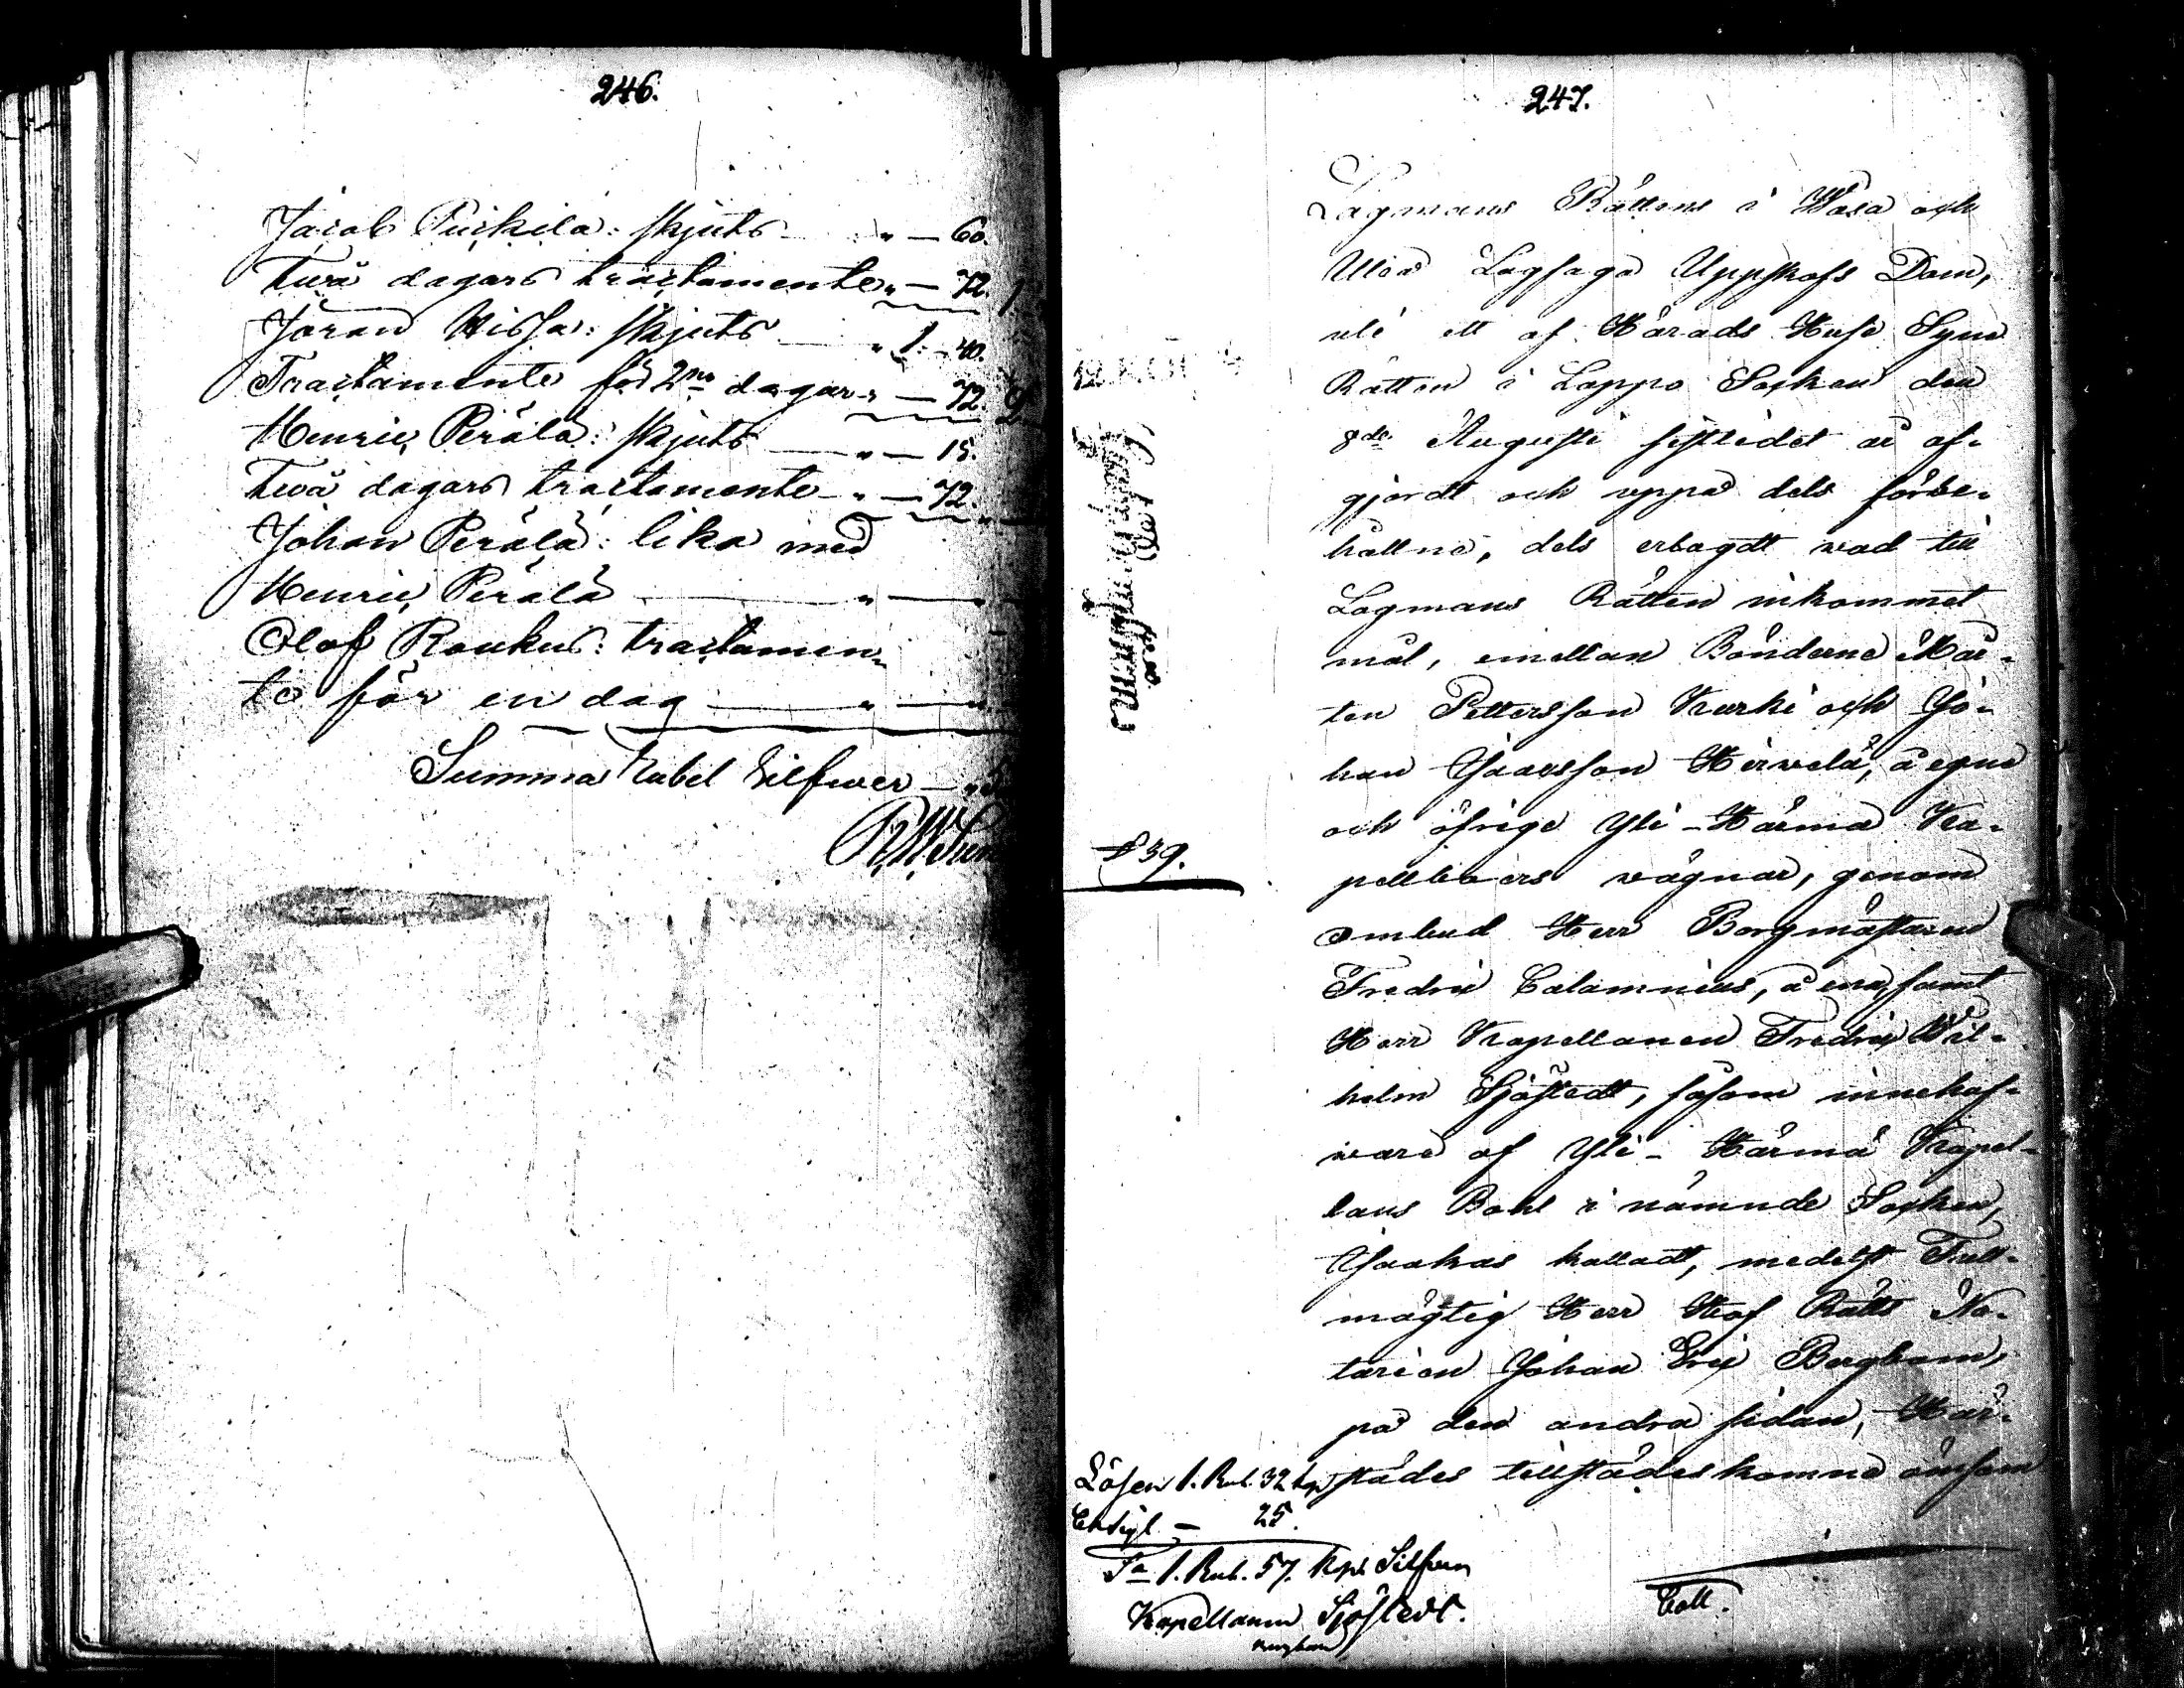 246.
Jacob Puikila: skjuts " — 60.
Twå dagars tractamente " — 72.
Jöran Kissa: skjuts — " 1. — 40.
Tractamente för 2ne dagar " — 72.
Henric Perälä: skjuts — " — 15.
Twå dagars tractamente — " — 72.
Johan Perälä: lika med
Henric Perälä — " — "
Olof Roukus: tractamen-
te för en dag — " — "
Summa Rubel Silfwer —
247.
Lagmans Rättens i Wasa och
Uleå Lagsaga Uppskofs Dom,
uti ett af Härads Husesyns
Rätten i Lappo Socken den
8de Augusti sistledet år af-
gjordt och uppå dels förbe-
hållne, dels erlagdt wad till
Lagmans Rätten inkommet
mål, emellan Bönderne Mår-
ten Pettersson Kurki och Jo-
han Isacsson Hirvelä, å egne
och öfrige Yli-Härmä Ka-
pellboers wägnar, genom
ombud Herr Borgmästaren
Fredric Calamnius, å ena, samt
Herr Kapellanen Fredric Wil-
helm Sjöstedt, såsom innehaf-
ware af Yli-Härmä Kapel-
lans Bohl i nämnde Socken,
Jaakas kalladt, medelst Full-
mägtig Herr Hof Rätts No-
tarien Johan Eric Bergbom,
på den andra sidan, Här-
städes tillstädeskomne ömsom
§ 39.
Lösen 1. Rub. 32 kop
Chsigl — 25.
Sa 1. Rub. 57. kop. Silfwer
Kapellanen Sjöstedt.
Coll.